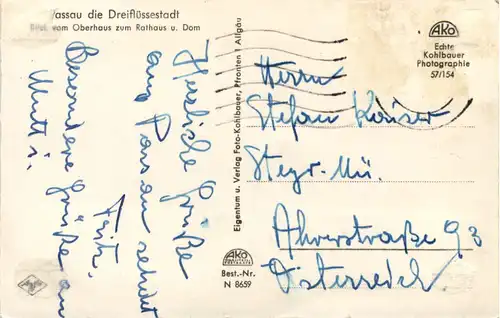 Passau die Dreiflüssestadt
vom Oberhaus zum Rathaus u. Dom
Herzliche Grüße
aus Passau sendet
Fritz.
Besondere Grüße an
Mutti.
Eigentum u. Verlag Foto-Kohlbauer, Pfronten / Allgäu
AKO
Echte
Kohlbauer
Photographie
57/154
Herrn
Stefan Kaiser
Steyr-Mü.
Ahrerstraße 93
Österreich.
AKO
Best.-Nr.
N 8659